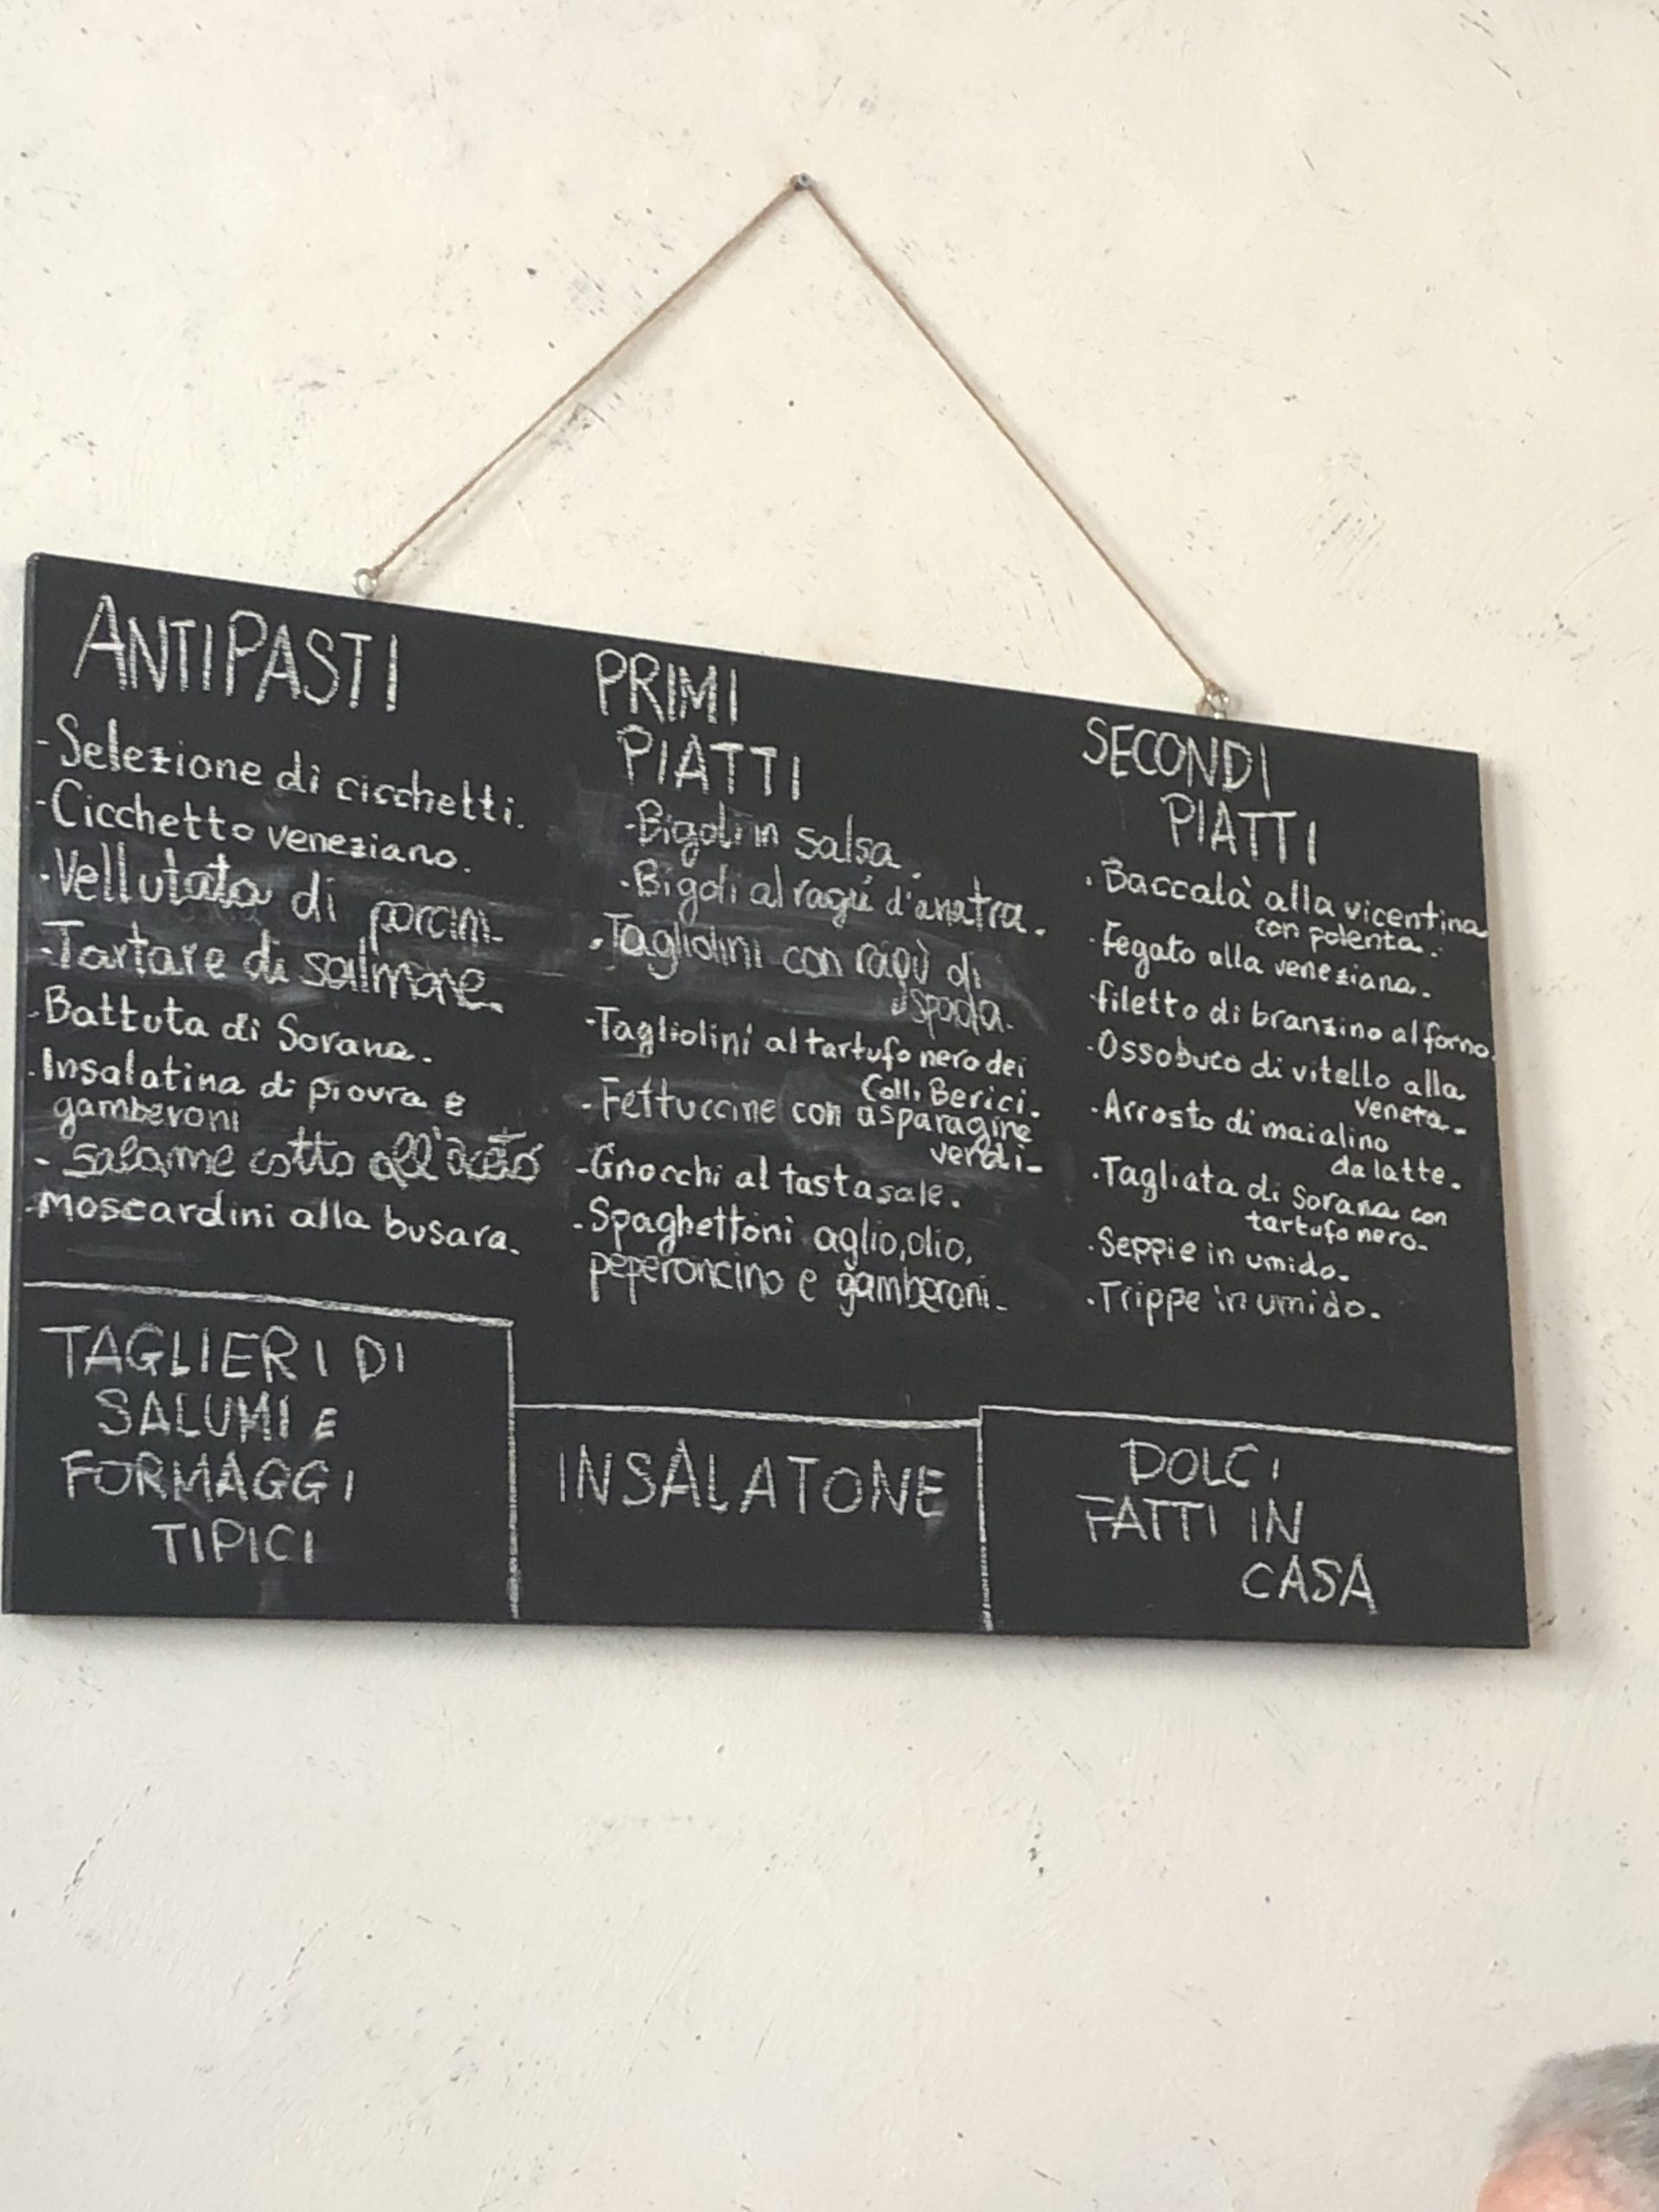 ANTIPASTI
-Selezione di cicchetti.
-Cicchetto veneziano.
-Vellutata di porcini-
-Tartare di salmone.
-Battuta di Sorana.
-Insalatina di piovra e
gamberoni
- Salame cotto all'aceto
-moscardini alla busara.
PRIMI
PIATTI
-Bigoli in salsa.
-Bigoli al ragú d'anatra.
-Tagliolini con ragù di
spada-
-Tagliolini al tartufo nero dei
Colli Berici.
-Fettuccine con asparagine
verdi-
-Gnocchi al tastasale.
-Spaghettoni aglio,olio,
peperoncino e gamberoni-
SECONDI
PIATTI
·Baccalà alla vicentina
con polenta.
·Fegato alla veneziana.
·filetto di branzino al forno.
·Ossobuco di vitello alla
veneta-
·Arrosto di maialino
da latte.
·Tagliata di Sorana con
tartufo nero-
·Seppie in umido.
·Trippe in umido.
TAGLIERI DI
SALUMI E
FORMAGGI
TIPICI
INSALATONE
DOLCI
FATTI IN
CASA